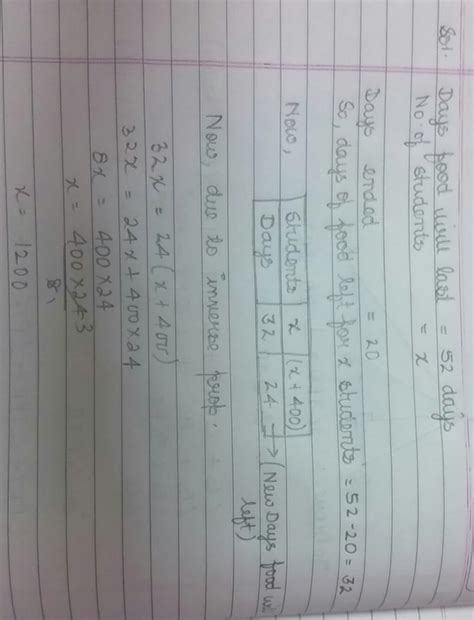 Sol.
Days food will last = 52 days
No of students = x
Days ended = 20
So, days of food left for x students = 52-20 = 32
Now,
Students | x | (x+400)
Days | 32 | 24 → (New Days food left)
Now, due to inverse prop.
32x = 24(x+400)
32x = 24x+400x24
8x = 400x24
x = 400x24 3
8
x = 1200